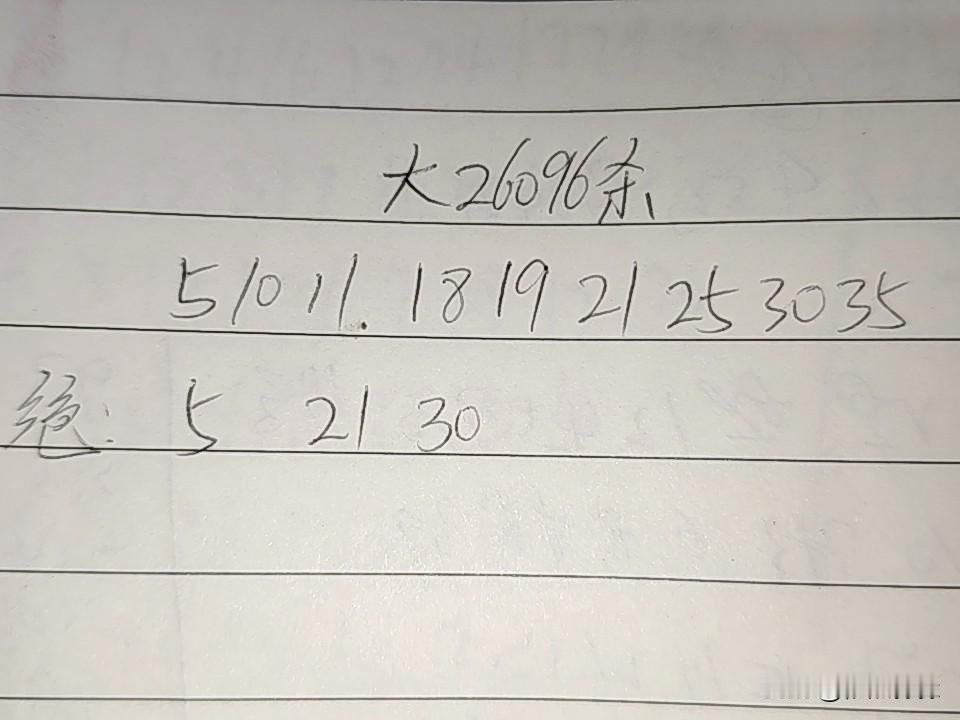 大26096杀
5 10 11. 18 19 21 25 30 35
绝: 5 21 30